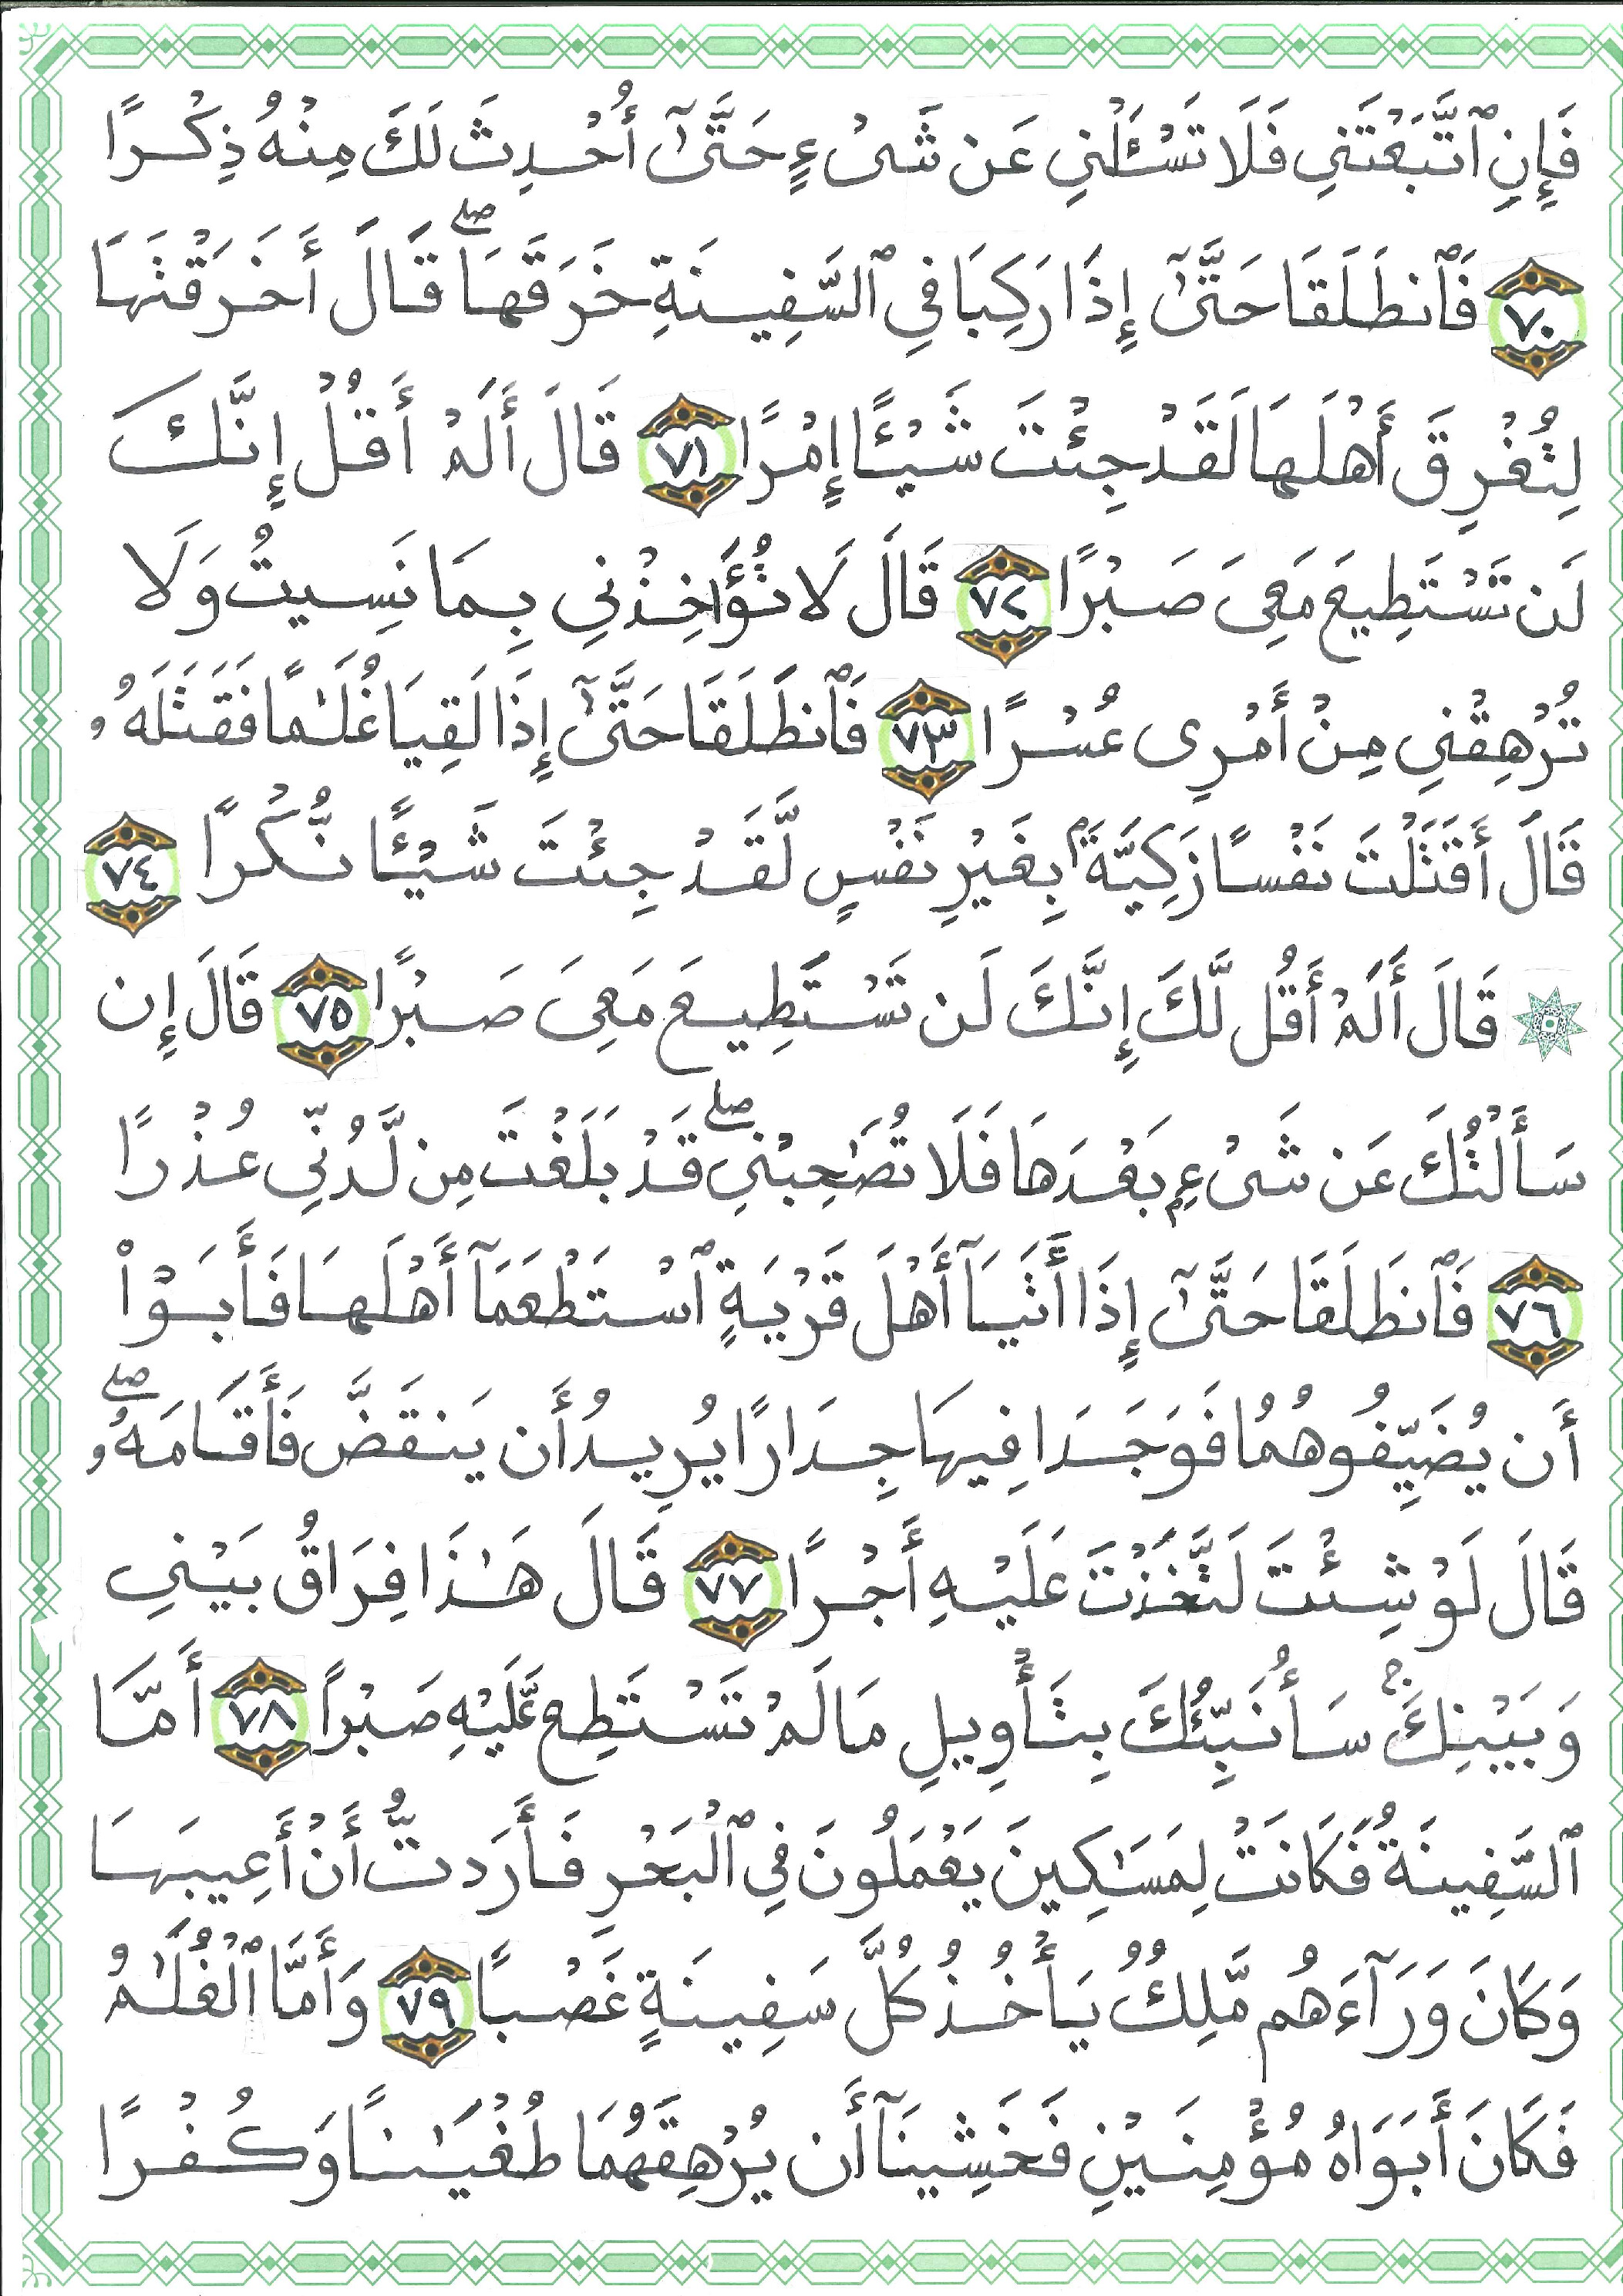 فَإِنِ ٱتَّبَعْتَنِي فَلَا تَسْـَٔلْنِي عَن شَىْءٍ حَتَّىٰٓ أُحْدِثَ لَكَ مِنْهُ ذِكْرًا
٧٠ فَٱنطَلَقَا حَتَّىٰٓ إِذَا رَكِبَا فِي ٱلسَّفِينَةِ خَرَقَهَا ۖ قَالَ أَخَرَقْتَهَا
لِتُغْرِقَ أَهْلَهَا لَقَدْ جِئْتَ شَيْـًٔا إِمْرًا ٧١ قَالَ أَلَمْ أَقُلْ إِنَّكَ
لَن تَسْتَطِيعَ مَعِىَ صَبْرًا ٧٢ قَالَ لَا تُؤَاخِذْنِي بِمَا نَسِيتُ وَلَا
تُرْهِقْنِي مِنْ أَمْرِى عُسْرًا ٧٣ فَٱنطَلَقَا حَتَّىٰٓ إِذَا لَقِيَا غُلَـٰمًا فَقَتَلَهُۥ
قَالَ أَقَتَلْتَ نَفْسًا زَكِيَّةَۢ بِغَيْرِ نَفْسٍ لَّقَدْ جِئْتَ شَيْـًٔا نُّكْرًا ٧٤
۞ قَالَ أَلَمْ أَقُل لَّكَ إِنَّكَ لَن تَسْتَطِيعَ مَعِىَ صَبْرًا ٧٥ قَالَ إِن
سَأَلْتُكَ عَن شَىْءِۭ بَعْدَهَا فَلَا تُصَـٰحِبْنِي ۖ قَدْ بَلَغْتَ مِن لَّدُنِّي عُذْرًا
٧٦ فَٱنطَلَقَا حَتَّىٰٓ إِذَا أَتَيَآ أَهْلَ قَرْيَةٍ ٱسْتَطْعَمَآ أَهْلَهَا فَأَبَوْا۟
أَن يُضَيِّفُوهُمَا فَوَجَدَا فِيهَا جِدَارًا يُرِيدُ أَن يَنقَضَّ فَأَقَامَهُۥ ۖ
قَالَ لَوْ شِئْتَ لَتَّخَذْتَ عَلَيْهِ أَجْرًا ٧٧ قَالَ هَـٰذَا فِرَاقُ بَيْنِي
وَبَيْنِكَ ۚ سَأُنَبِّئُكَ بِتَأْوِيلِ مَا لَمْ تَسْتَطِع عَّلَيْهِ صَبْرًا ٧٨ أَمَّا
ٱلسَّفِينَةُ فَكَانَتْ لِمَسَـٰكِينَ يَعْمَلُونَ فِي ٱلْبَحْرِ فَأَرَدتُّ أَنْ أَعِيبَهَا
وَكَانَ وَرَآءَهُم مَّلِكٌ يَأْخُذُ كُلَّ سَفِينَةٍ غَصْبًا ٧٩ وَأَمَّا ٱلْغُلَـٰمُ
فَكَانَ أَبَوَاهُ مُؤْمِنَيْنِ فَخَشِينَآ أَن يُرْهِقَهُمَا طُغْيَـٰنًا وَكُفْرًا